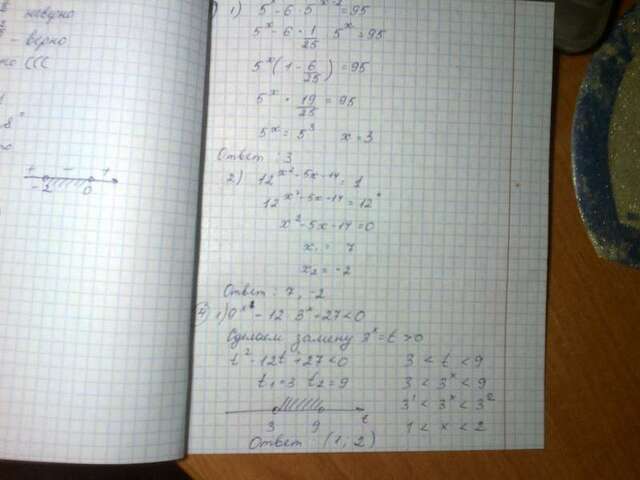 - неверно
- верно
но (((
+ - +
-2 0
1) 5ˣ - 6 · 5ˣ⁻² = 95
5ˣ - 6 · 1/25 5ˣ = 95
5ˣ (1 - 6/25) = 95
5ˣ · 19/25 = 95
5ˣ = 5³ x = 3
Ответ: 3
2) 12^(x² - 5x - 14) = 1
12^(x² - 5x - 14) = 12°
x² - 5x - 14 = 0
x₁ = 7
x₂ = -2
Ответ: 7, -2
4 1) 9ˣ - 12 · 3ˣ + 27 < 0
Сделаем замену 3ˣ = t > 0
t² - 12t + 27 < 0 3 < t < 9
t₁ = 3 t₂ = 9 3 < 3ˣ < 9
3¹ < 3ˣ < 3²
3 9 t
1 < x < 2
Ответ (1; 2)